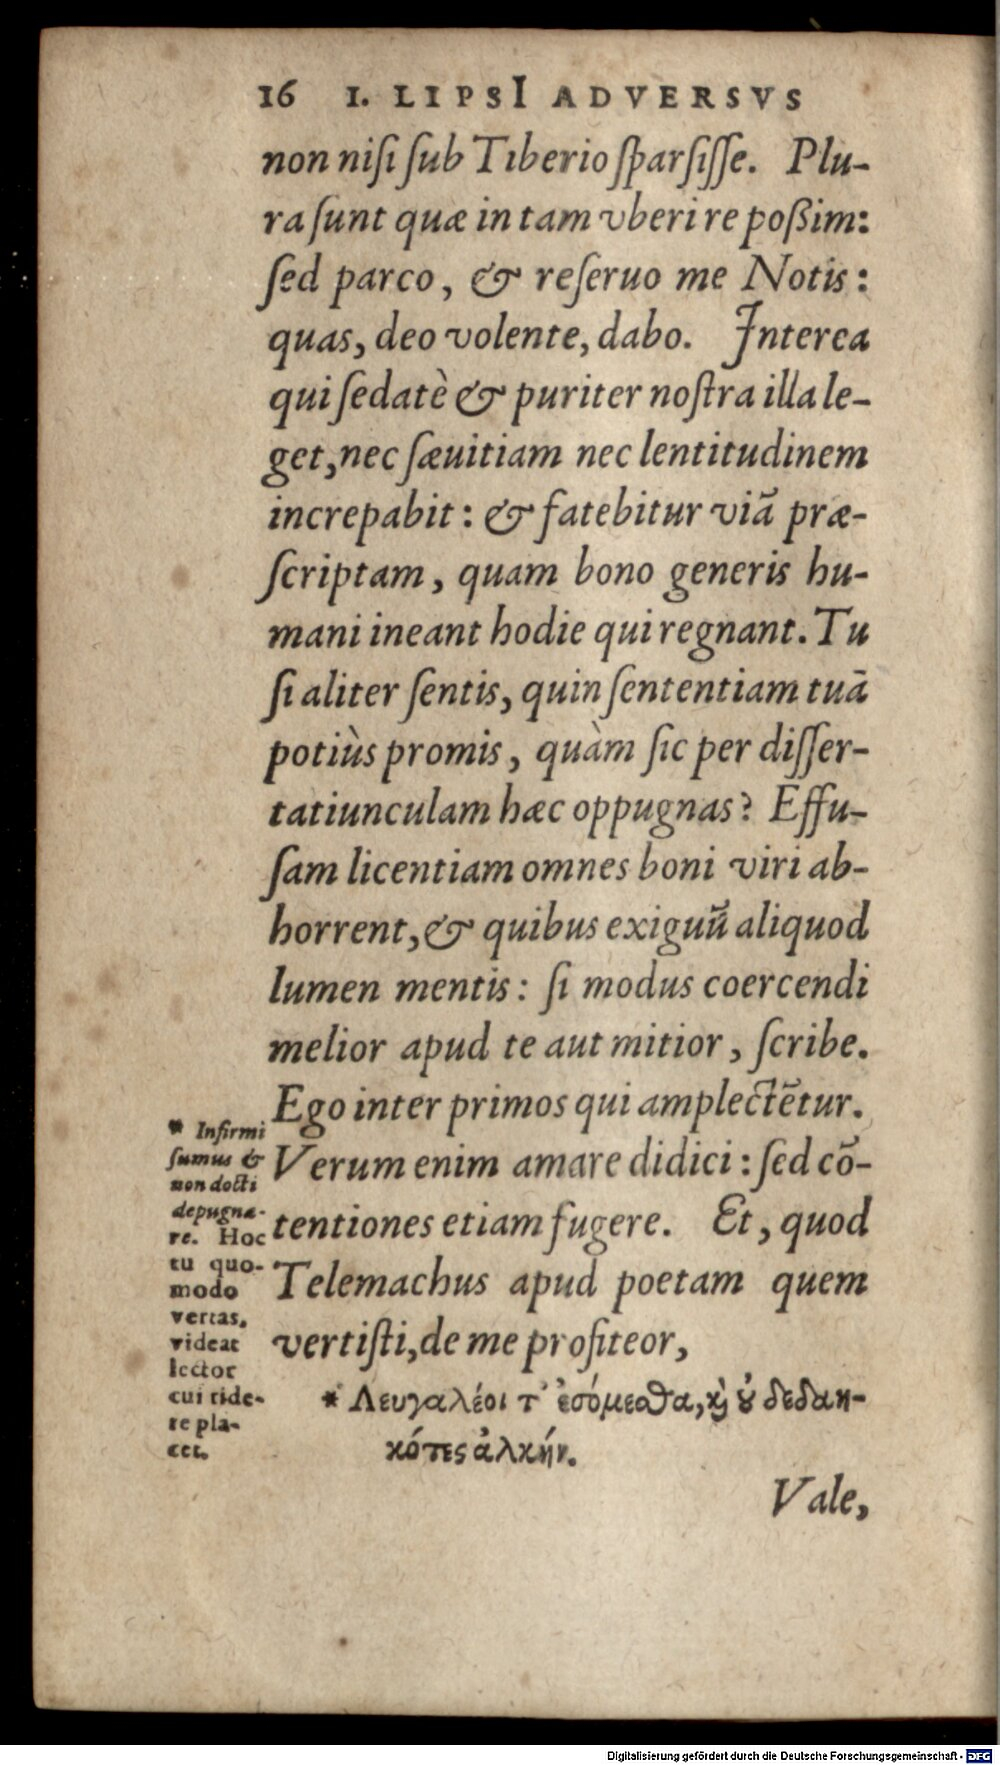 16 I. LIPSI ADVERSVS
non niſi ſub Tiberio ſparſiſſe. Plu-
ra ſunt quæ in tam vberi re poßim:
ſed parco, & reſeruo me Notis:
quas, deo volente, dabo. Interea
qui ſedatè & puriter noſtra illa le-
get, nec ſæuitiam nec lentitudinem
increpabit: & fatebitur viā præ-
ſcriptam, quam bono generis hu-
mani ineant hodie qui regnant. Tu
ſi aliter ſentis, quin ſententiam tuā
potiùs promis, quàm ſic per diſſer-
tatiunculam hæc oppugnas? Effu-
ſam licentiam omnes boni viri ab-
horrent, & quibus exiguū aliquod
lumen mentis: ſi modus coercendi
melior apud te aut mitior, ſcribe.
Ego inter primos qui amplectētur.
Verum enim amare didici: ſed cō-
tentiones etiam fugere. Et, quod
Telemachus apud poetam quem
vertiſti, de me profiteor,
* Λευγαλέοι τ᾽ ἐσόμεσθα, ϗ ȣ̓ δεδαη-
κότες ἀλκήν.
Vale,
* Infirmi
ſumus &
non docti
depugna-
re. Hoc
tu quo-
modo
vertas,
videat
lector
cui ride-
re pla-
cet.
Digitalisierung gefördert durch die Deutsche Forschungsgemeinschaft - DFG